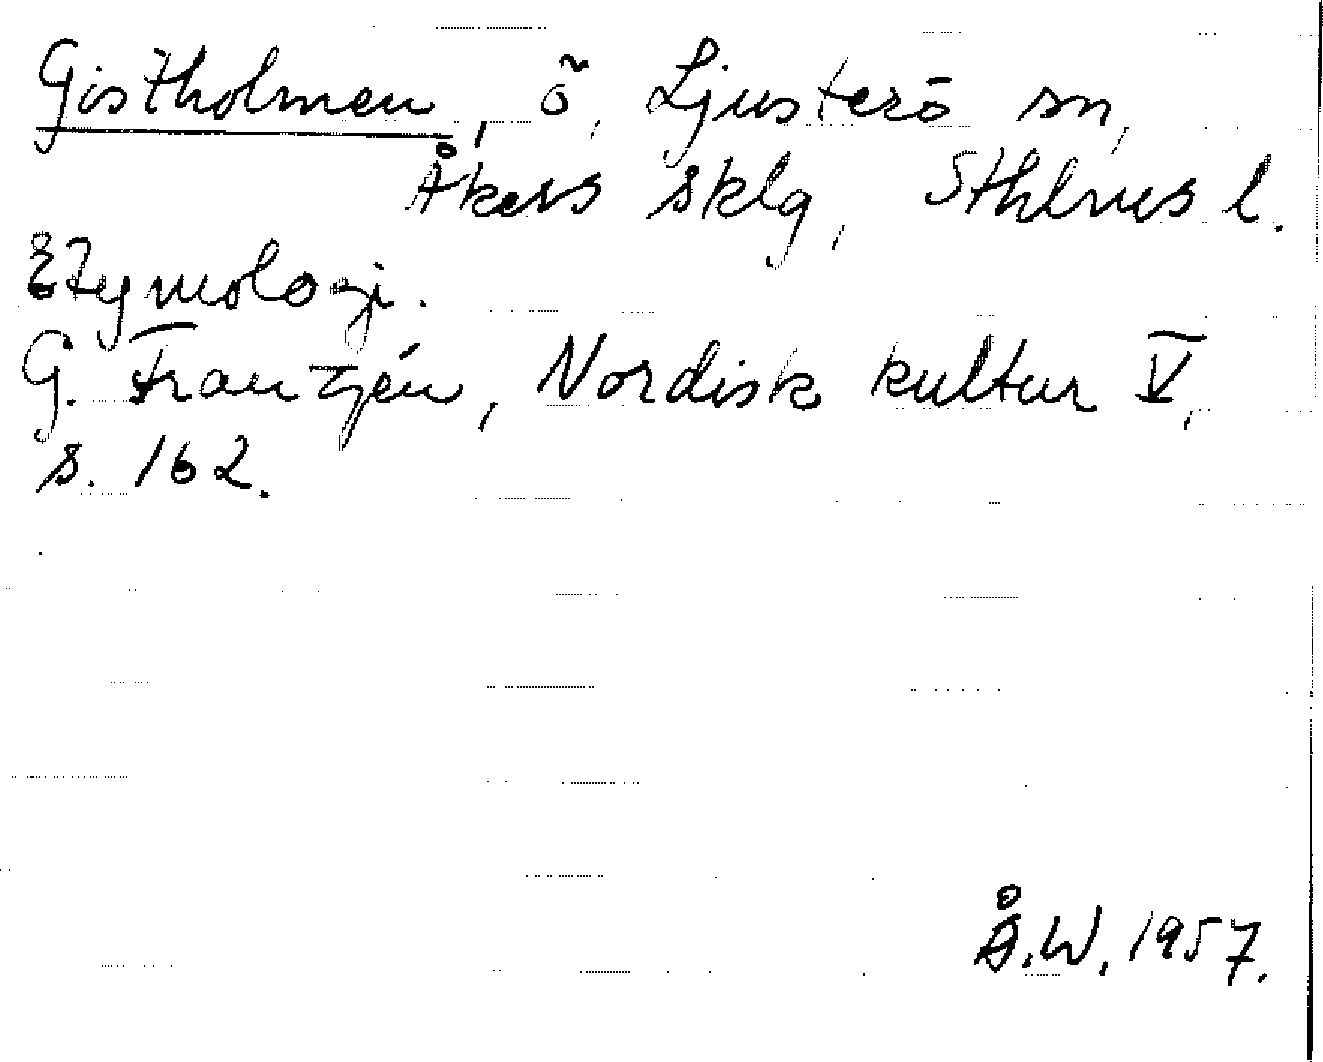 Gistholmen, ö, Ljusterö sn,
Åkers sklg, Sthlms l.
Etymologi.
G. Franzén, Nordisk kultur V,
s. 162.
Å.W. 1957.